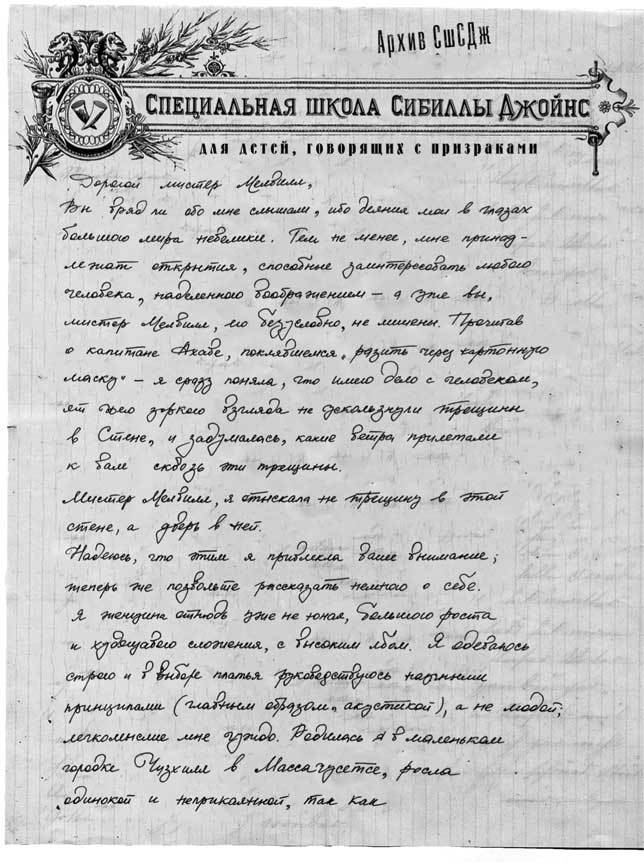 Архив СшСДж
Специальная школа Сибиллы Джойнс
для детей, говорящих с призраками
Дорогой мистер Мелвилл,
Вы вряд ли обо мне слышали, ибо деяния мои в глазах
большого мира невелики. Тем не менее, мне принад-
лежат открытия, способные заинтересовать любого
человека, наделенного воображением – а уже вы,
мистер Мелвилл, его безусловно, не лишены. Прочитав
о капитане Ахаве, поклявшемся „разить через картонную
маску" – я сразу поняла, что имею дело с человеком,
от чьего зоркого взгляда не ускользнули трещины
в Стене, и задумалась, какие ветра прилетали
к вам сквозь эти трещины.
Мистер Мелвилл, я отыскала не трещину в этой
стене, а дверь в ней.
Надеюсь, что этим я привлекла ваше внимание;
теперь же позвольте рассказать немного о себе.
Я женщина отнюдь уже не юная, большого роста
и худощавого сложения, с высоким лбом. Я одеваюсь
строго и в выборе платья руководствуюсь научными
принципами (главным образом, акустикой), а не модой;
легкомыслие мне чуждо. Родилась я в маленьком
городке Чизхилл в Массачусетсе, росла
одинокой и неприкаянной, так как